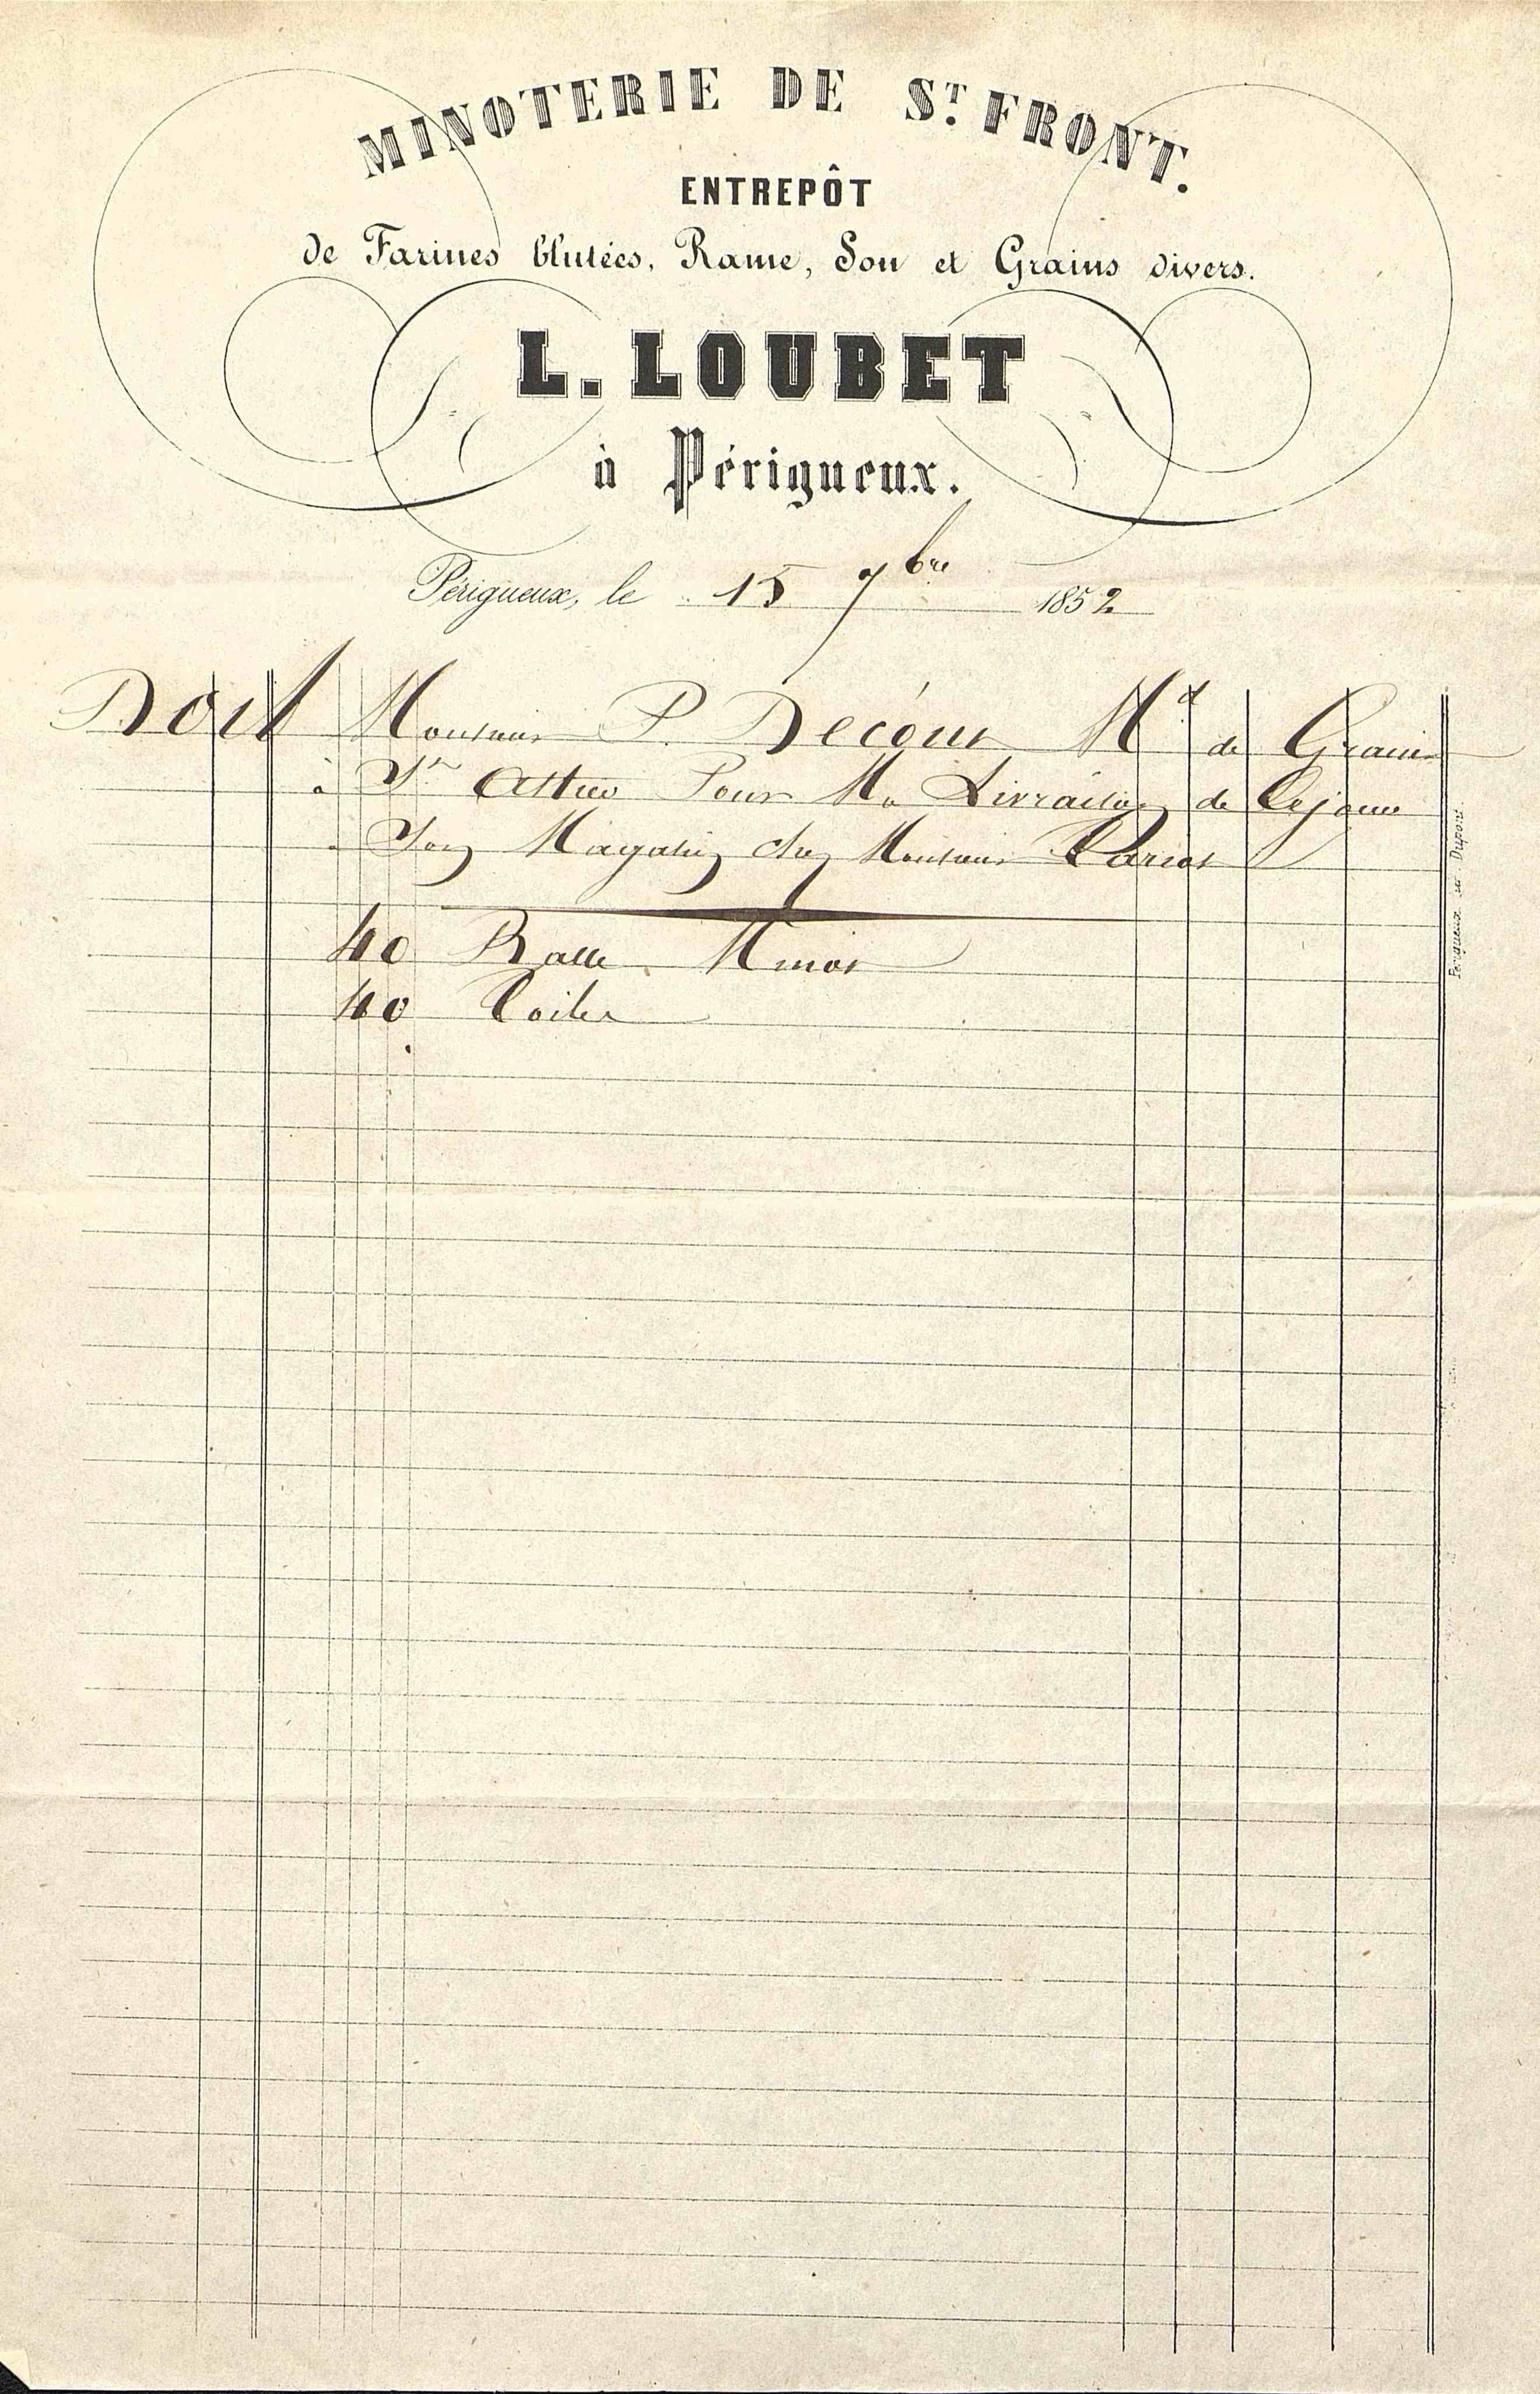 MINOTERIE DE ST. FRONT.
ENTREPÔT
de Farines blutées, Rame, Son et Grains divers.
L. LOUBET
à Périgueux.
Périgueux, le 15 7bre 1852
Doit Monsieur P. Decour Md de Grains
à St Astier Pour Ma Livraison de Cejour
Son Magasin chez Monsieur
40 Balle Minot
40 Toiles
Périgueux Dupont.